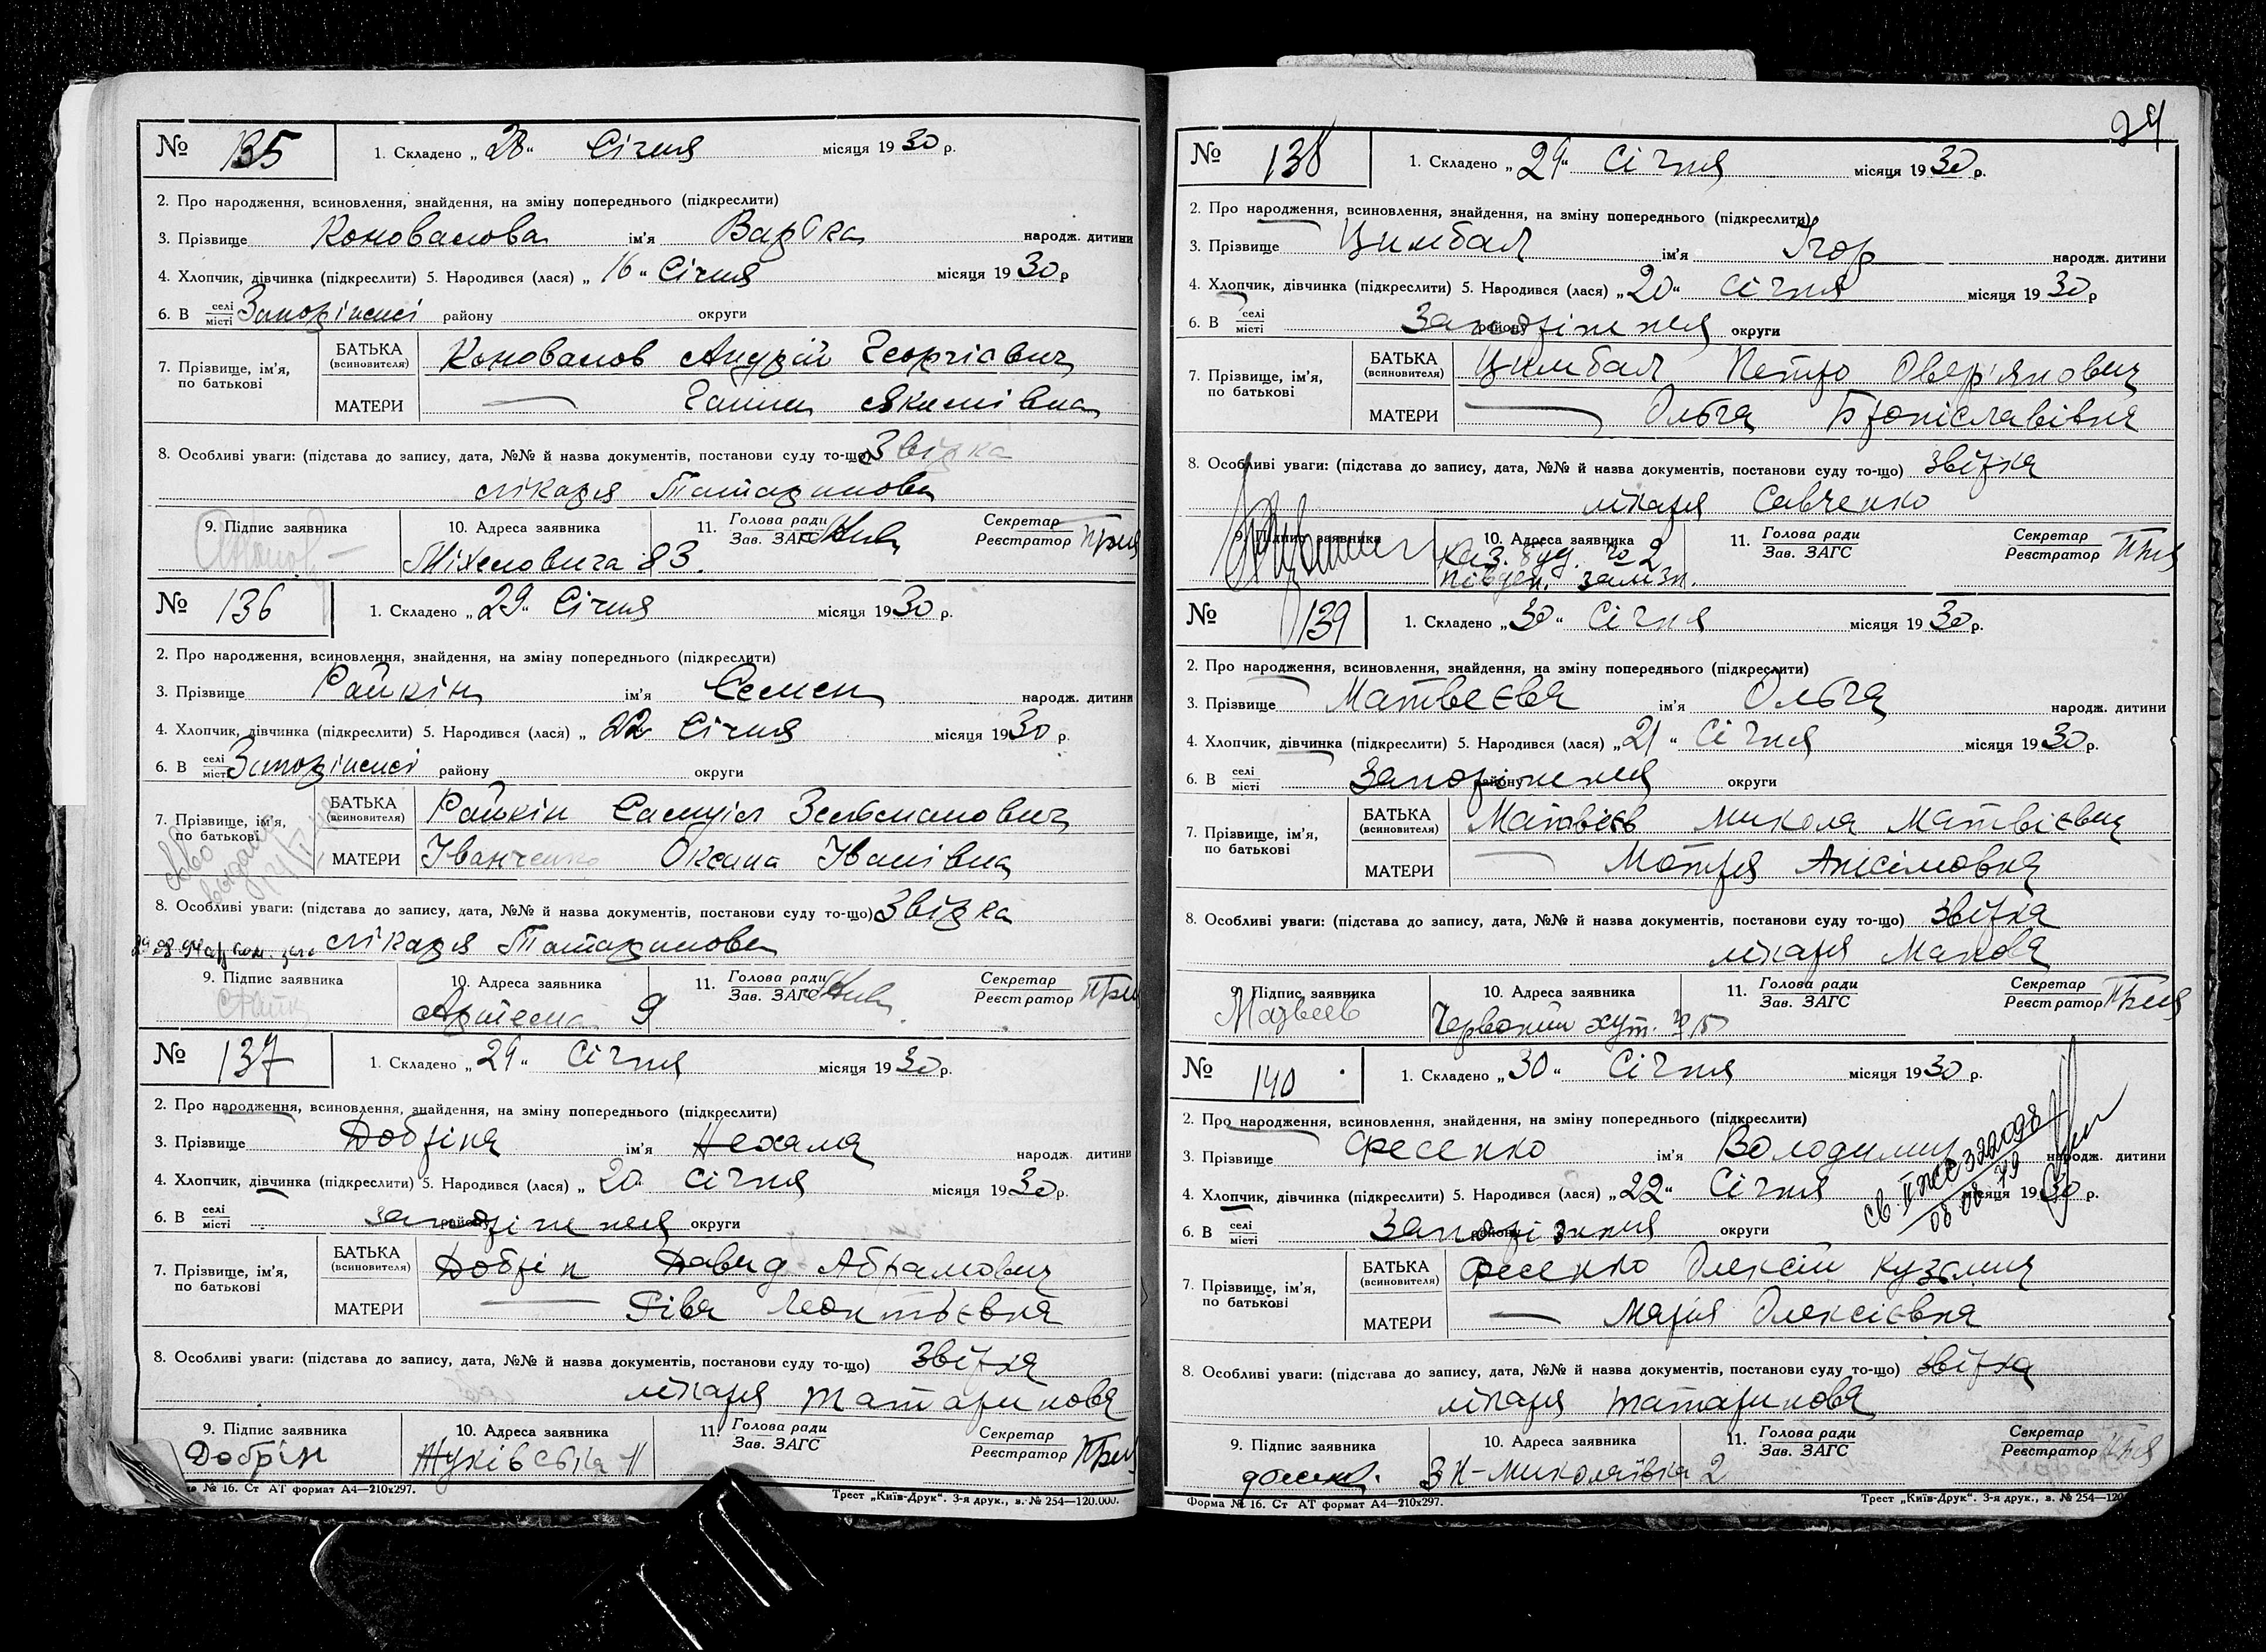 № 135 1. Складено „28“ Січня місяця 1930 р.
2. Про народження, всиновлення, знайдення, на зміну попереднього (підкреслити)
3. Прізвище Коновалова ім'я народж. дитини
4. Хлопчик, дівчинка (підкреслити) 5. Народився (лася) „16“ Січня місяця 1930 р
6. В селі місті Запоріжжі району округи
7. Прізвище, ім'я, по батькові БАТЬКА (всиновителя) Коновалов Андрій Георгіович
МАТЕРИ — Ганна Якимівна
8. Особливі уваги: (підстава до запису, дата, №№ й назва документів, постанови суду то-що) Звідка
лікаря Татаринова
9. Підпис заявника 10. Адреса заявника 11. Голова ради Зав. ЗАГС Секретар Реєстратор
83.
№ 136 1. Складено „29“ Січня місяця 1930 р.
2. Про народження, всиновлення, знайдення, на зміну попереднього (підкреслити)
3. Прізвище Райкін ім'я Семен народж. дитини
4. Хлопчик, дівчинка (підкреслити) 5. Народився (лася) „22 Січня місяця 1930 р.
6. В селі місті Запоріжжі району округи
7. Прізвище, ім'я, по батькові БАТЬКА (всиновителя) Райкін Самуіл Зельманович
МАТЕРИ Іванченко Оксана Іванівна
8. Особливі уваги: (підстава до запису, дата, №№ й назва документів, постанови суду то-що) Звідка
лікаря Татаринова
9. Підпис заявника 10. Адреса заявника 11. Голова ради Зав. ЗАГС Секретар Реєстратор
Артема 9
№ 137 1. Складено „29“ Січня місяця 1930 р.
2. Про народження, всиновлення, знайдення, на зміну попереднього (підкреслити)
3. Прізвище Добріна ім'я Нехама народж. дитини
4. Хлопчик, дівчинка (підкреслити) 5. Народився (лася) „20“ Січня місяця 1930 р.
6. В селі місті Запоріжжя району округи
7. Прізвище, ім'я, по батькові БАТЬКА (всиновителя) Добрін Давид Абрамович
МАТЕРИ — Ріва Леонтьєвна
8. Особливі уваги: (підстава до запису, дата, №№ й назва документів, постанови суду то-що) Звідка
лікаря Татаринова
9. Підпис заявника 10. Адреса заявника 11. Голова ради Зав. ЗАГС Секретар Реєстратор
Добрін Жуківська 11
№ 16. Ст АТ формат А4—210х297. Трест „Київ-Друк“. 3-я друк., в. № 254—120.000.
№ 138 1. Складено „29“ Січня місяця 1930 р.
2. Про народження, всиновлення, знайдення, на зміну попереднього (підкреслити)
3. Прізвище Цимбал ім'я Ігор народж. дитини
4. Хлопчик, дівчинка (підкреслити) 5. Народився (лася) „20“ Січня місяця 1930 р
6. В селі місті Запоріжжя району округи
7. Прізвище, ім'я, по батькові БАТЬКА (всиновителя) Цимбал Петро Овер'янович
МАТЕРИ — Ольга Броніславівна
8. Особливі уваги: (підстава до запису, дата, №№ й назва документів, постанови суду то-що) звідка
лікаря Савченко
9. Підпис заявника 10. Адреса заявника 11. Голова ради Зав. ЗАГС Секретар Реєстратор
Каз. буд. № 2
півден. залізн.
№ 139 1. Складено „30“ Січня місяця 1930 р.
2. Про народження, всиновлення, знайдення, на зміну попереднього (підкреслити)
3. Прізвище Матвеєва ім'я Ольга народж. дитини
4. Хлопчик, дівчинка (підкреслити) 5. Народився (лася) „21“ Січня місяця 1930 р.
6. В селі місті Запоріжжя району округи
7. Прізвище, ім'я, по батькові БАТЬКА (всиновителя) Матвієв Микола Матвієвич
МАТЕРИ — Мотря Анісімовна
8. Особливі уваги: (підстава до запису, дата, №№ й назва документів, постанови суду то-що) Звідка
лікаря
9. Підпис заявника 10. Адреса заявника 11. Голова ради Зав. ЗАГС Секретар Реєстратор
Матвеев Червоний хут.
№ 140 1. Складено „30“ Січня місяця 1930 р.
2. Про народження, всиновлення, знайдення, на зміну попереднього (підкреслити)
3. Прізвище Фесенко ім'я Володимир народж. дитини
4. Хлопчик, дівчинка (підкреслити) 5. Народився (лася) „22“ Січня місяця 1930 р.
6. В селі місті Запоріжжя району округи
7. Прізвище, ім'я, по батькові БАТЬКА (всиновителя) Фесенко Олексій Кузьмич
МАТЕРИ — Марія Олексієвна
8. Особливі уваги: (підстава до запису, дата, №№ й назва документів, постанови суду то-що) звідка
лікаря Татаринова
9. Підпис заявника 10. Адреса заявника 11. Голова ради Зав. ЗАГС Секретар Реєстратор
2
Форма № 16. Ст АТ формат А4—210х297. Трест „Київ-Друк“. 3-я друк., в. № 254—120